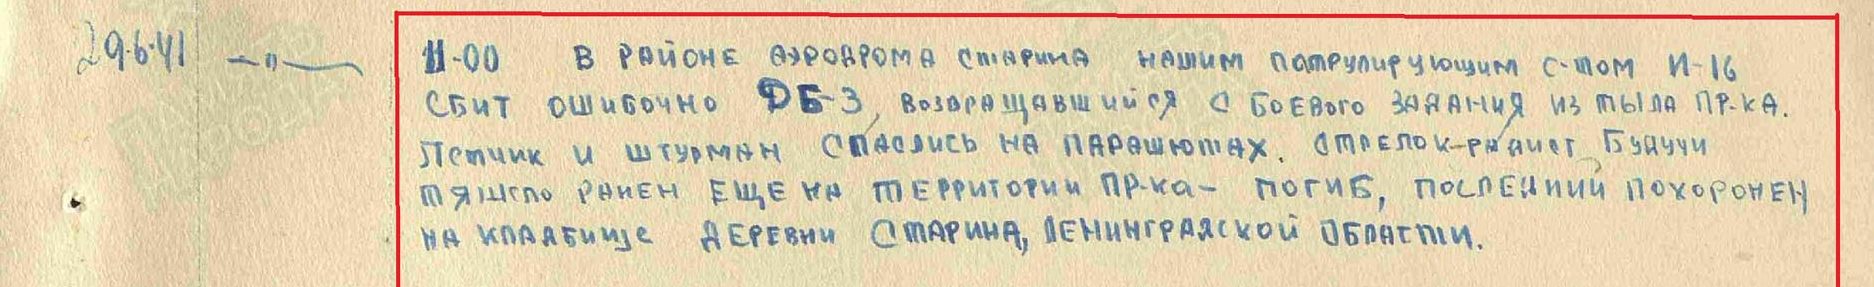 29.6.41 —"— 11-00 В РАЙОНЕ АЭРОДРОМА СТАРИНА НАШИМ ПАТРУЛИРУЮЩИМ С-ТОМ И-16
СБИТ ОШИБОЧНО ДБ-3, ВОЗВРАЩАВШИЙСЯ С БОЕВОГО ЗАДАНИЯ ИЗ ТЫЛА ПР-КА.
ЛЕТЧИК И ШТУРМАН СПАСЛИСЬ НА ПАРАШЮТАХ. СТРЕЛОК-РАДИСТ БУДУЧИ
ТЯЖЕЛО РАНЕН ЕЩЕ НА ТЕРРИТОРИИ ПР-КА – ПОГИБ, ПОСЛЕДНИЙ ПОХОРОНЕН
НА КЛАДБИЩЕ ДЕРЕВНИ СТАРИНА, ЛЕНИНГРАДСКОЙ ОБЛАСТИ.